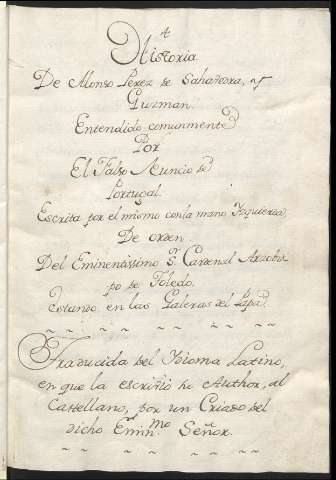 Historia
De Alonso Perez de Sahavedra, y
Guzman.
Entendido comunmente
Por
El Falso Nuncio de
Portugal.
Escrita por el mismo con la mano Izquierda,
De orden
Del Eminentissimo Sr. Cardenal Arzobis
po de Toledo.
Estando en las Galeras del Papa.
Traducida del Idioma Latino,
en que la escrivio su Author, al
Castellano, por un Criado del
dicho Eminmo. Señor.